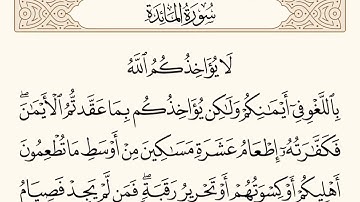 سُورَةُ المَائِدَةِ
لَا يُؤَاخِذُكُمُ ٱللَّهُ
بِٱللَّغْوِ فِىٓ أَيْمَـٰنِكُمْ وَلَـٰكِن يُؤَاخِذُكُم بِمَا عَقَّدتُّمُ ٱلْأَيْمَـٰنَ ۖ
فَكَفَّـٰرَتُهُۥٓ إِطْعَامُ عَشَرَةِ مَسَـٰكِينَ مِنْ أَوْسَطِ مَا تُطْعِمُونَ
أَهْلِيكُمْ أَوْ كِسْوَتُهُمْ أَوْ تَحْرِيرُ رَقَبَةٍ ۖ فَمَن لَّمْ يَجِدْ فَصِيَامُ